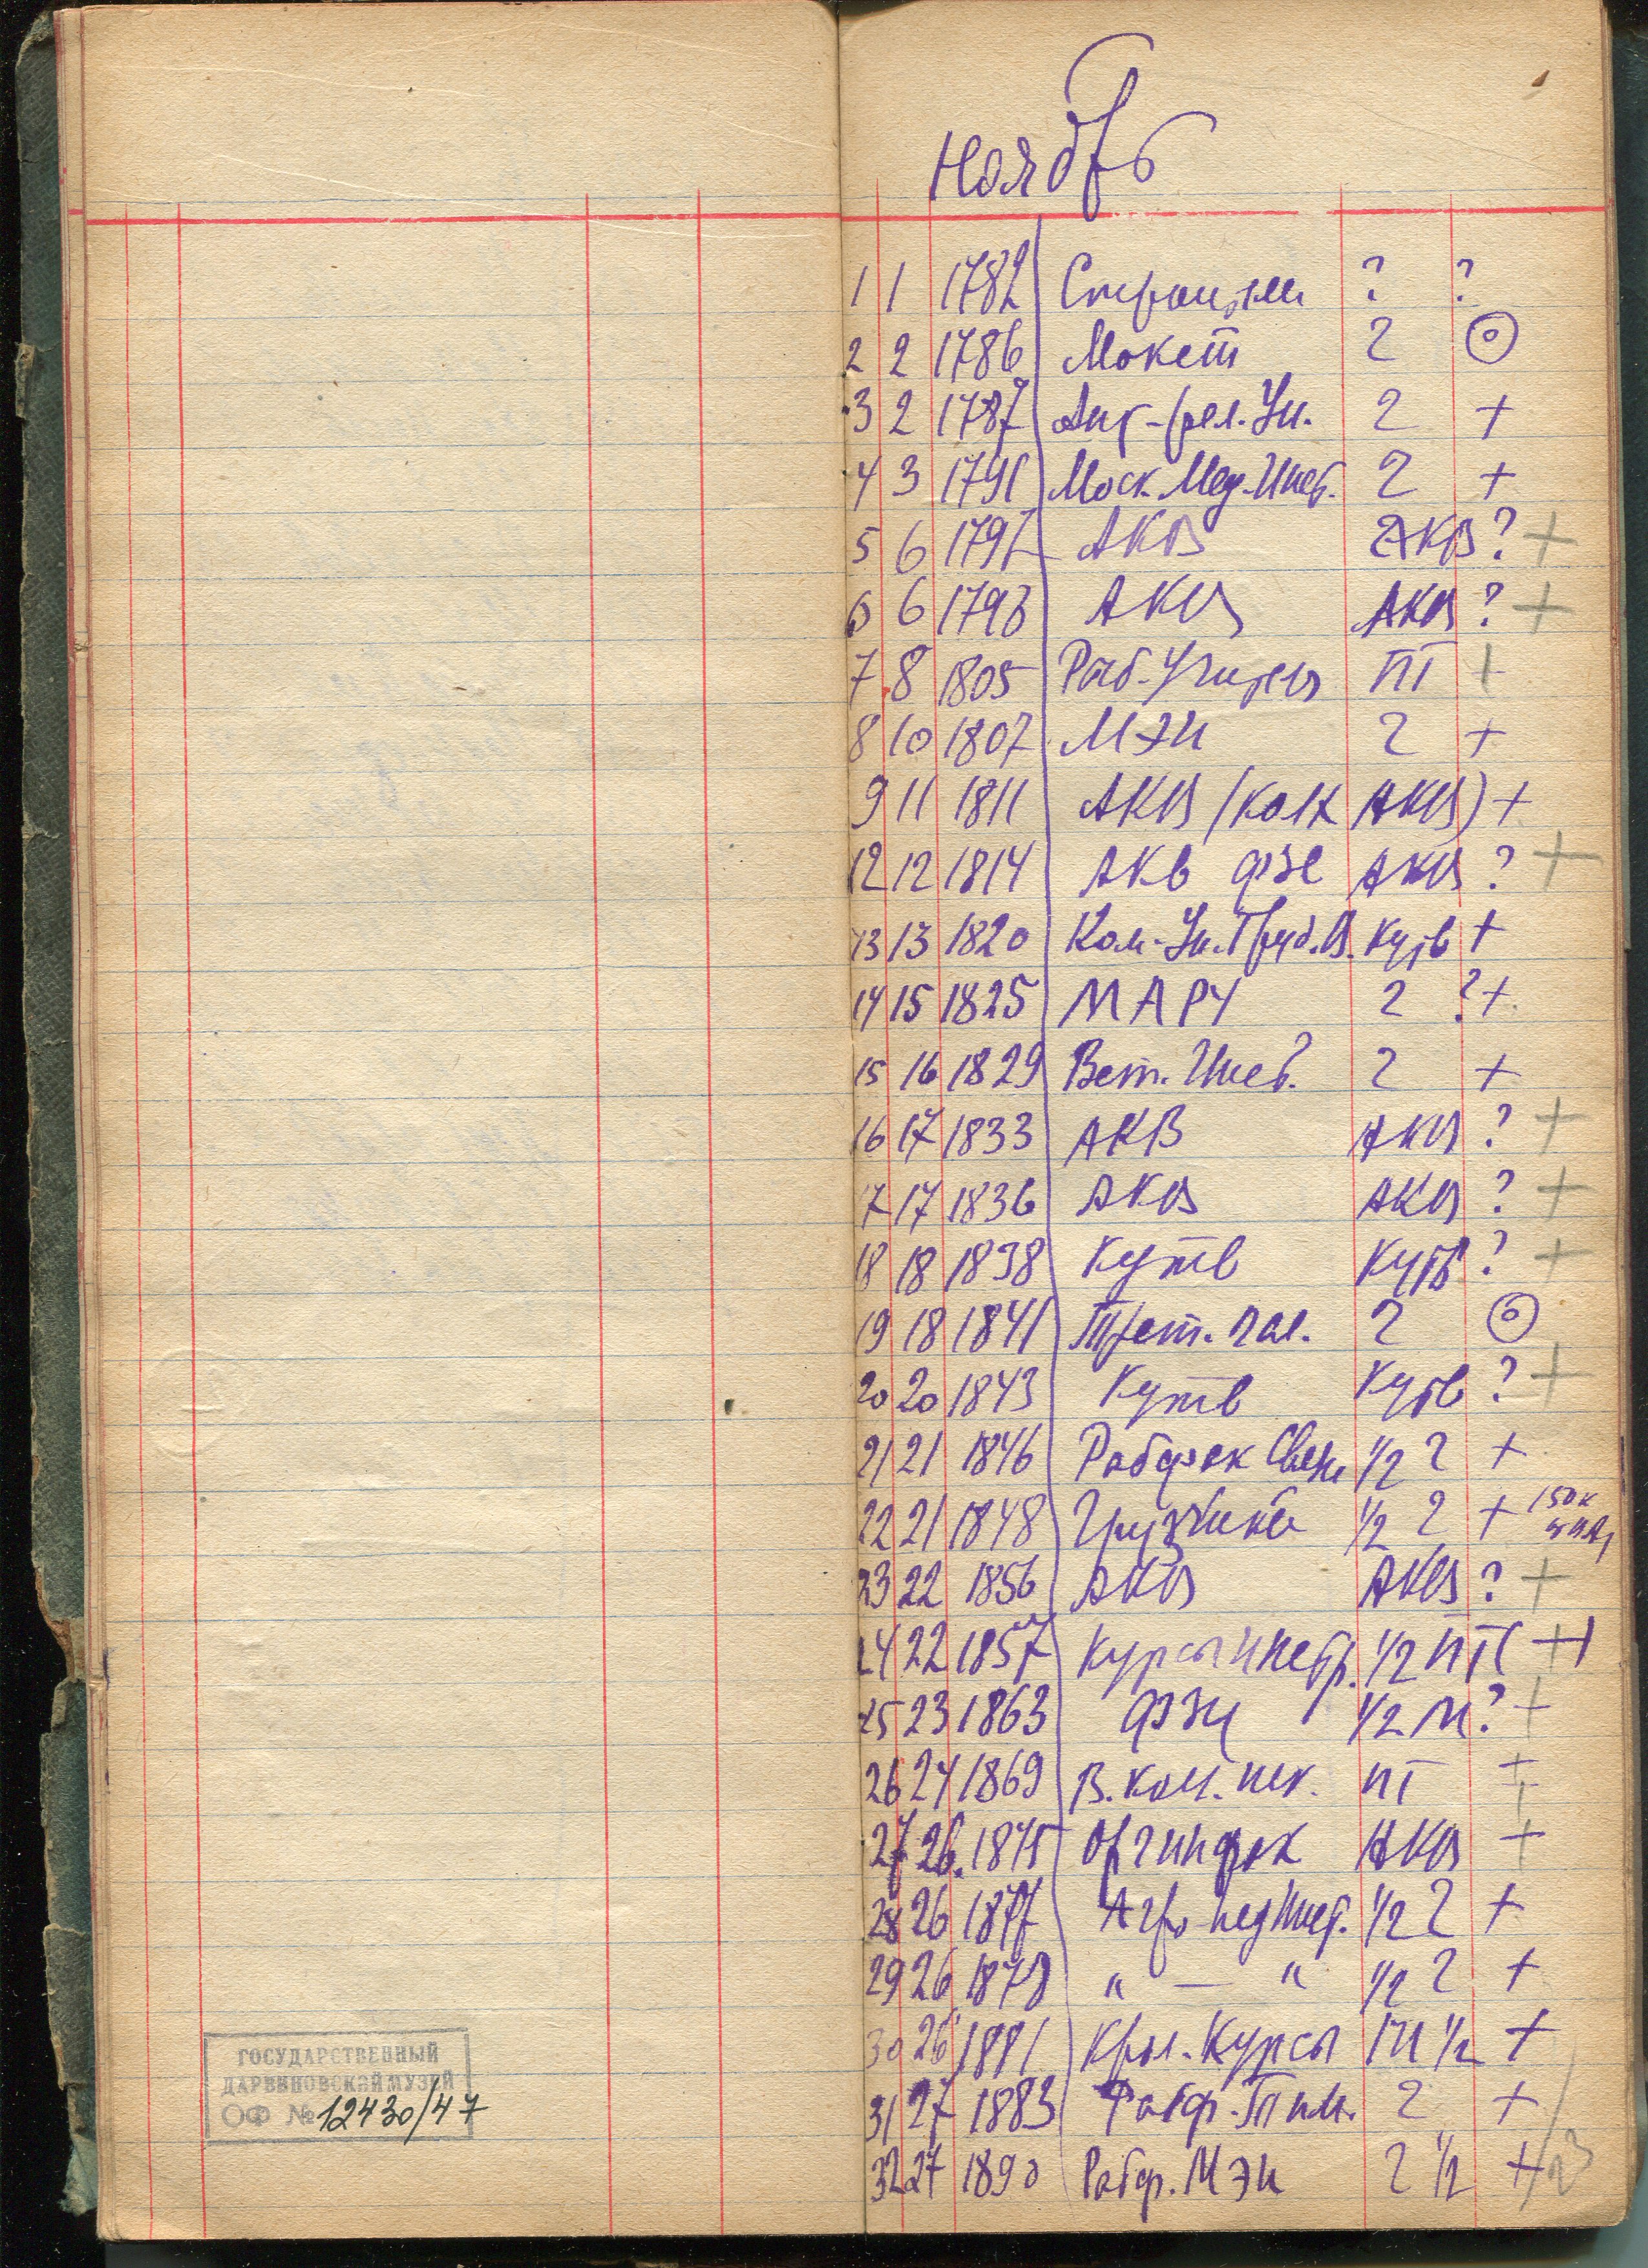 Ноябрь
1 1 1782 ? ?
2 2 1786 Макет 2
3 2 1787 Ун. 2 +
4 3 1791 Моск. Мед. Инст. 2 +
5 6 1791 АКВ АКВ ? +
6 6 1793 АКВ АКВ ? +
7 8 1805 Раб. Учитель ПТ +
8 10 1807 МЭИ 2 +
9 11 1811 АКВ (колх АКВ) +
12 12 1814 АКВ фзе АКВ ? +
13 13 1820 Ком. Ун. Труд. В. Кутв +
14 15 1825 МАРУ 2 ? +
15 16 1829 Вет. Инст. 2 +
16 17 1833 АКВ АКВ ? +
17 17 1836 АКВ АКВ ? +
18 18 1838 Кутв Кутв ? +
19 18 1841 Трет. гал. 2
20 20 1843 Кутв Кутв ? +
21 21 1846 Рабфак 1/2 2 +
22 21 1848 1/2 2 + 150к
23 22 1856 АКВ АКВ ? +
24 22 1857 Курсы 1/2 ПТ +
25 23 1863 ФЗУ 1/2 М ? +
26 24 1869 В. ком. шк. ПТ +
27 26. 1875 АКВ +
28 26 1877 Агро-пед Инст. 1/2 2 +
29 26 1878 " — " 1/2 2 +
30 26 1881 Курсы 1/2 +
31 27 1883 Рабф. Тим. 2 +
32 27 1890 Рабф. МЭИ 2 1/2 +
ГОСУДАРСТВЕННЫЙ
ДАРВИНОВСКИЙ МУЗЕЙ
ОФ № 12430/47